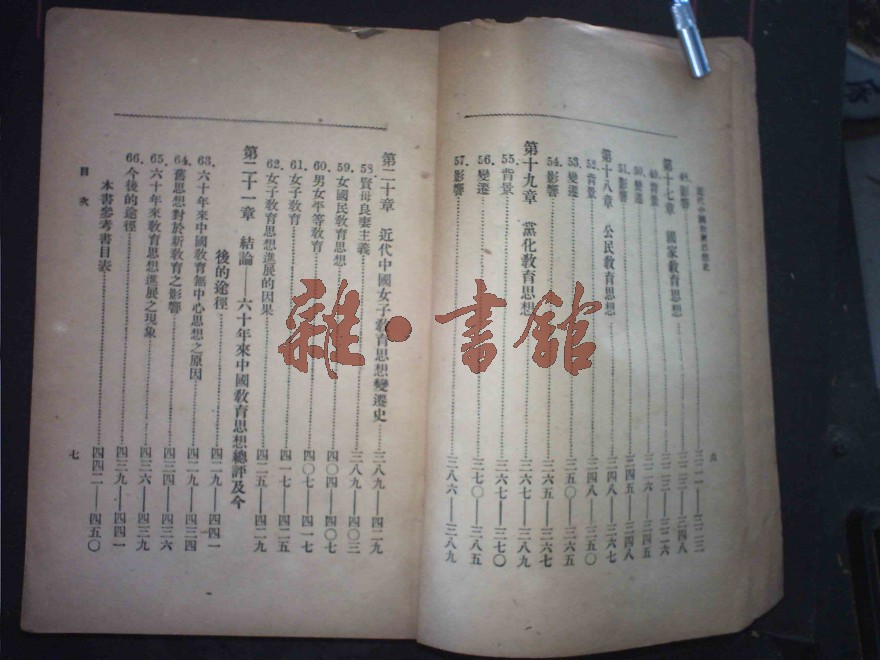 近代中國教育思想史
48. 影響……三二一——三二三
第十七章 國家教育思想……三二三——三四八
49. 背景……三二三——三二六
50. 變遷……三二六——三四五
51. 影響……三四五——三四八
第十八章 公民教育思想……三四八——三六七
52. 背景……三四八——三五〇
53. 變遷……三五〇——三六五
54. 影響……三六五——三六七
第十九章 黨化教育思想……三六七——三八九
55. 背景……三六七——三七〇
56. 變遷……三七〇——三八五
57. 影響……三八六——三八九
六
第二十章 近代中國女子教育思想變遷史……三八九——四二九
58. 賢母良妻主義……三八九——四〇三
59. 女國民教育思想……四〇四——四〇七
60. 男女平等教育……四〇七——四一七
61. 女子教育……四一七——四二五
62. 女子教育思想進展的因果……四二五——四二九
第二十一章 結論——六十年來中國教育思想總評及今
後的途徑……四二九——四四一
63. 六十年來中國教育無中心思想之原因……四二九——四三四
64. 舊思想對於新教育之影響……四三四——四三六
65. 六十年來教育思想進展之現象……四三六——四三九
66. 今後的途徑……四三九——四四一
本書參考書目表……四四二——四五〇
目次
七
雜·書館